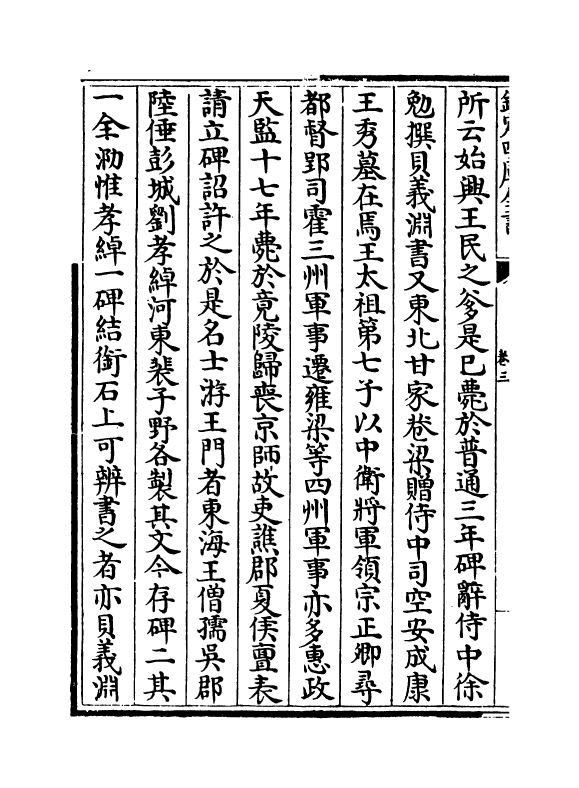 欽定四庫全書
卷三
所云始興王民之爹是已薨於普通三年碑辭侍中徐
勉撰貝義淵書又東北甘家巷梁贈侍中司空安成康
王秀墓在焉王太祖第七子以中衛將軍領宗正卿尋
都督郢司霍三州軍事遷雍梁等四州軍事亦多惠政
天監十七年薨於竟陵歸喪京師故吏譙郡夏侯亶表
請立碑詔許之於是名士游王門者東海王僧孺吳郡
陸倕彭城劉孝綽河東裴子野各製其文今存碑二其
一全泐惟孝綽一碑結銜石上可辨書之者亦貝義淵